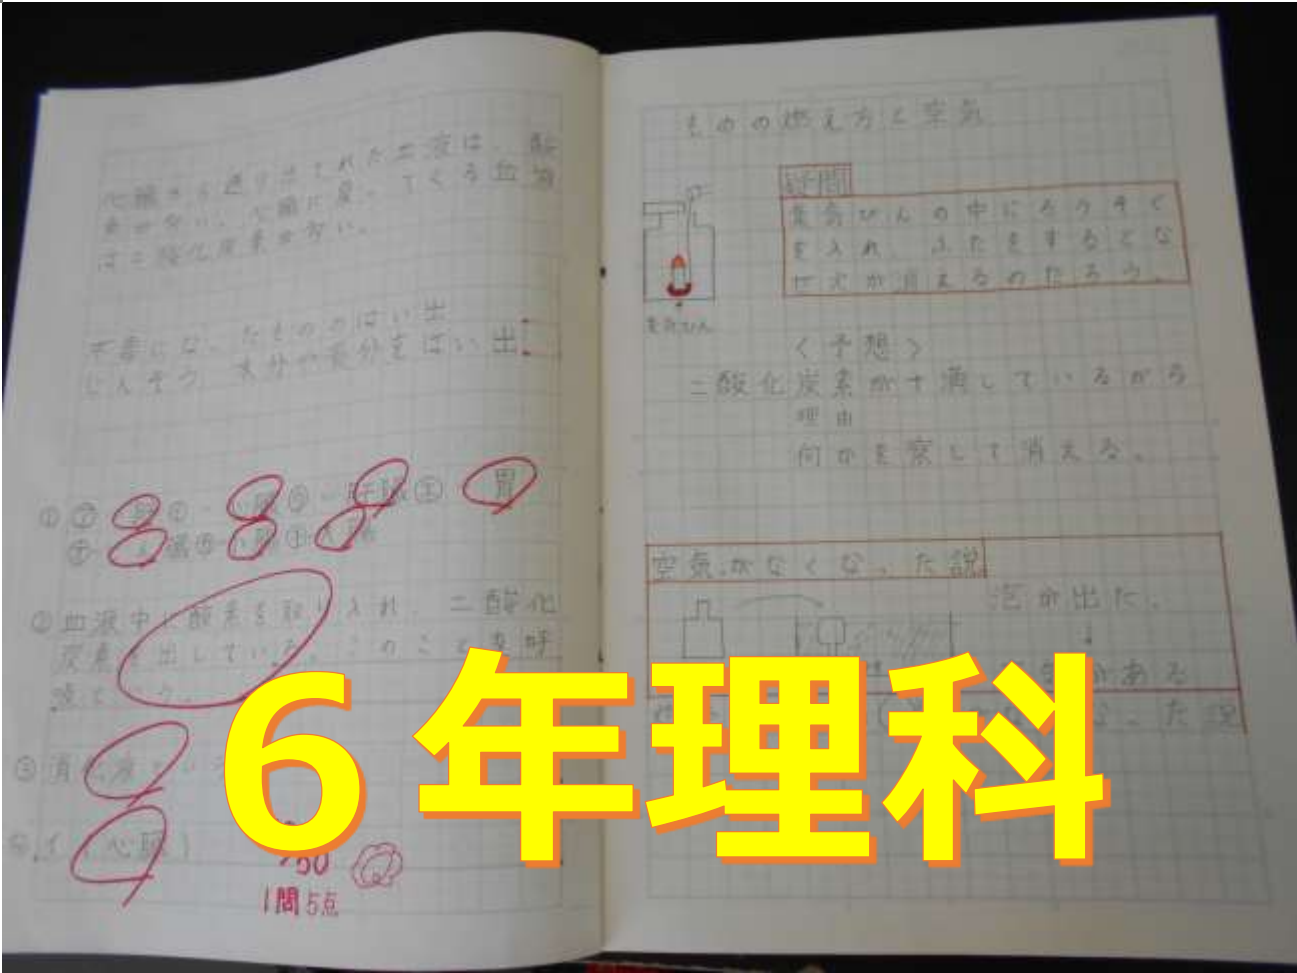 心臓から送り出された血液は、酸
素が多い。心臓に戻ってくる血液
は二酸化炭素が多い。
不要になったもののはい出
じんぞう 水分や養分をはい出
① ⑦ 肺 ④ 心臓 ⑤ 肝臓 胃
小腸 大腸
② 血液中に酸素を取り入れ、二酸化
炭素を出している。このことを呼
③ 消化液という
イ(心臓)
50
1問5点
ものの燃え方と空気
疑問
集気びんの中にろうそく
を入れ、ふたをするとな
ぜ火が消えるのだろう。
集気びん
<予想>
二酸化炭素が十満しているから
理由
何かを察して消える。
空気がなくなった説
泡が出た。
↓
がある
なった説
6年理科